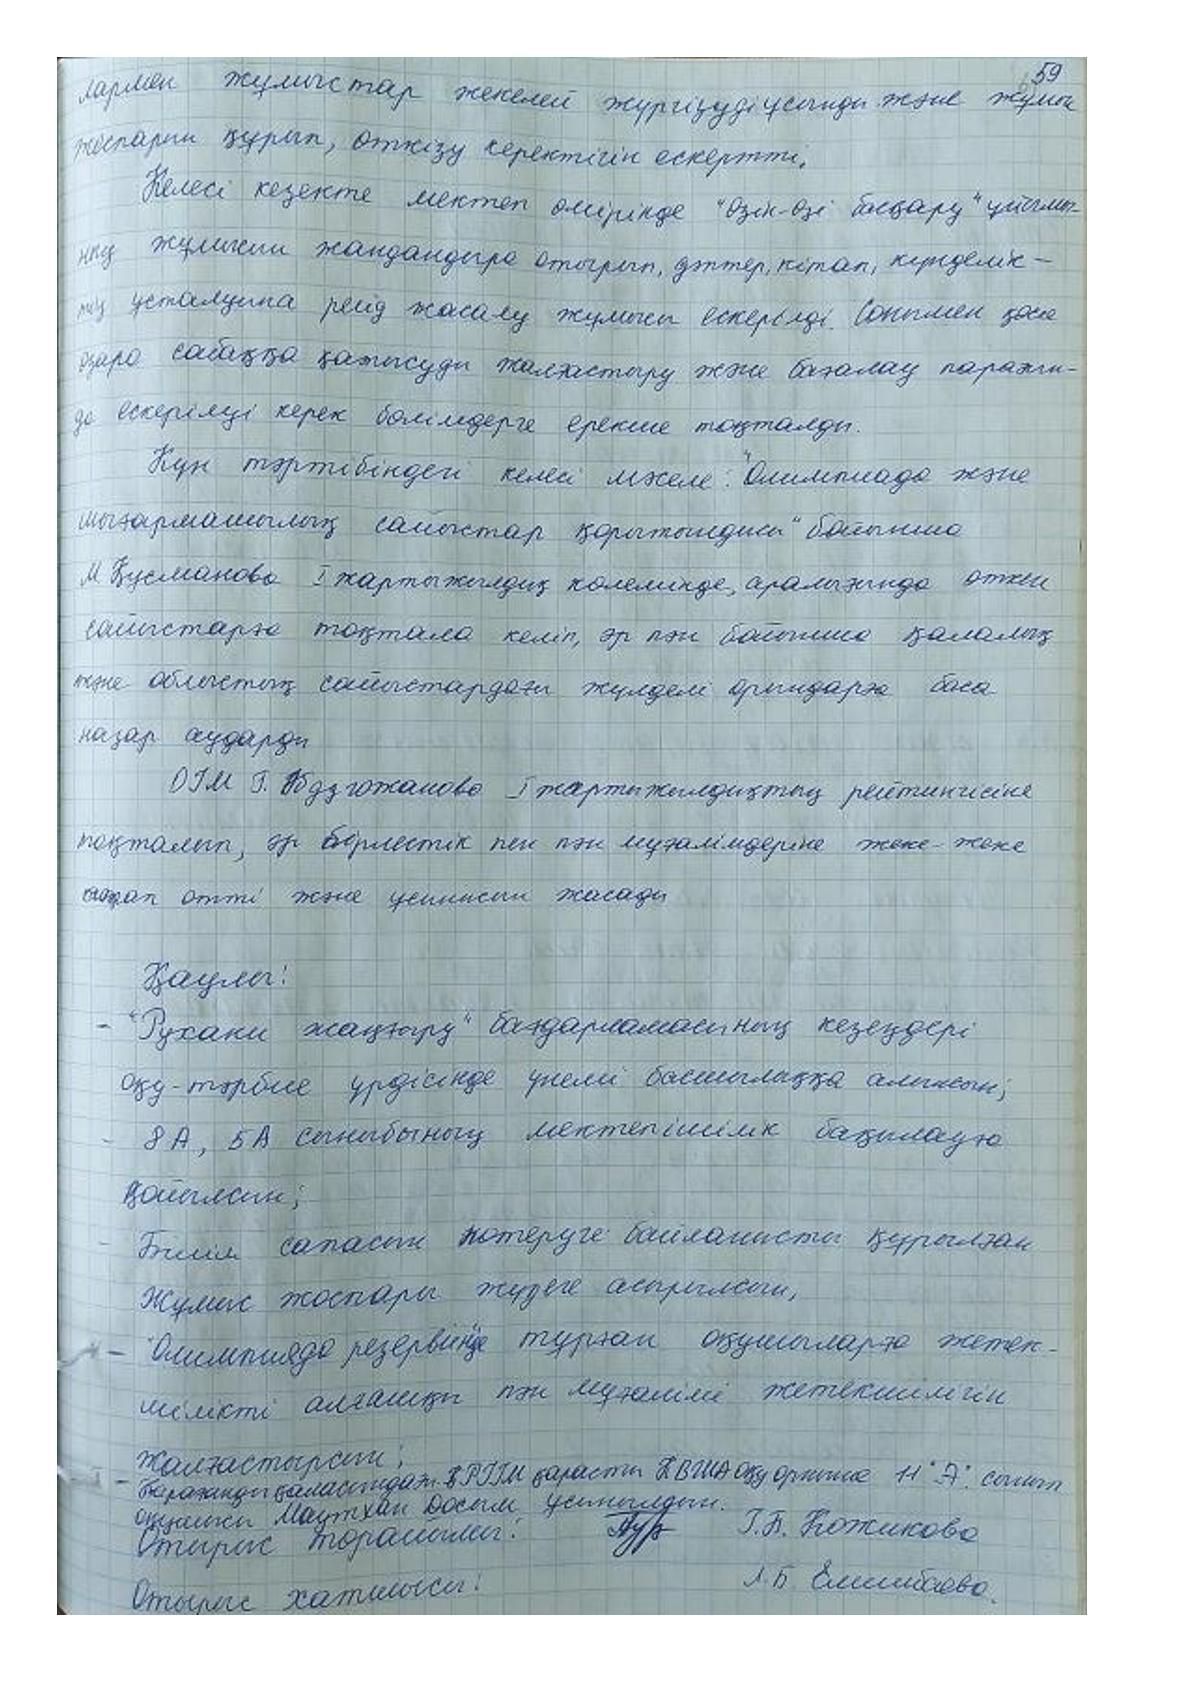 59
лармен жұмыстар жекелей жүргізуді ұсынды және жұмыс
жоспарын құрып, өткізу керектігін ескертті.
Келесі кезекте мектеп өмірінде "өзін-өзі басқару" ұйымы-
ның жұмысын жандандыра отырып, дәптер, кітап, күнделік-
тің ұсталуына рейд жасалу жұмысы ескерілді. Сонымен қоса
өзара сабаққа қатысуды жалғастыру және бағалау парағын-
да ескерілуі керек бөлімдерге ерекше тоқталды.
Күн тәртібіндегі келесі мәселе: "Олимпиада және
шығармашылық сайыстар қорытындысы" бойынша
М Құсманова I жартыжылдық көлемінде, аралығында өткен
сайыстарға тоқтала келіп, әр пән бойынша қалалық
және облыстық сайыстардағы жүлделі орындарға баса
назар аударды
ОІМ Г. Абдугожанова I жартыжылдықтың рейтингісіне
тоқталып, әр бірлестік пен пән мұғалімдеріне жеке-жеке
атап өтті және ұсынысын жасады
Қаулы:
- "Рухани жаңғыру" бағдарламасының кезеңдері
оқу-тәрбие үрдісінде үнемі басшылыққа алынсын;
- 8А, 5А сыныбының мектепішілік бақылауға
қойылсын;
- Білім сапасын көтеруге байланысты құрылған
жұмыс жоспары жүзеге асырылсын,
- "Олимпиада резервінде" тұрған оқушыларға жетек-
шілікті алғашқы пән мұғалімі жетекшілігін
жалғастырсын;
- Қарағанды қаласындағы ҚР ІІМ қарасты ҚВША оқу орнына 11 "Ә" сынып
оқушысы Маутхан Досым ұсынылдын.
Отырыс төрайымы: Г.Б. Кожикова
Отырыс хатшысы: Л.Б Елишбаева.